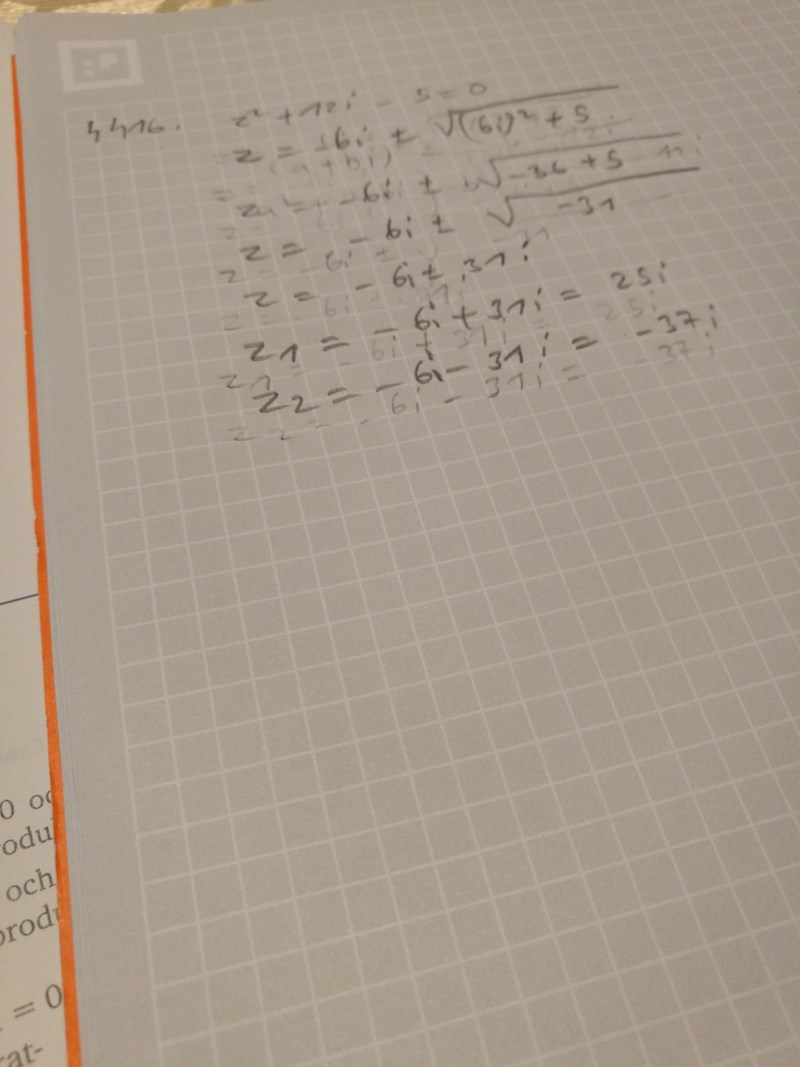 :P
4416. z² + 12i - 5 = 0
z = -6i ± √((6i)² + 5
z = -6i ± √-36 + 5
z = -6i ± √-31
z = -6i ± 31i
z1 = -6i + 31i = 25i
z2 = -6i - 31i = -37i
0 oc
odu
och
prod
= 0
rat-